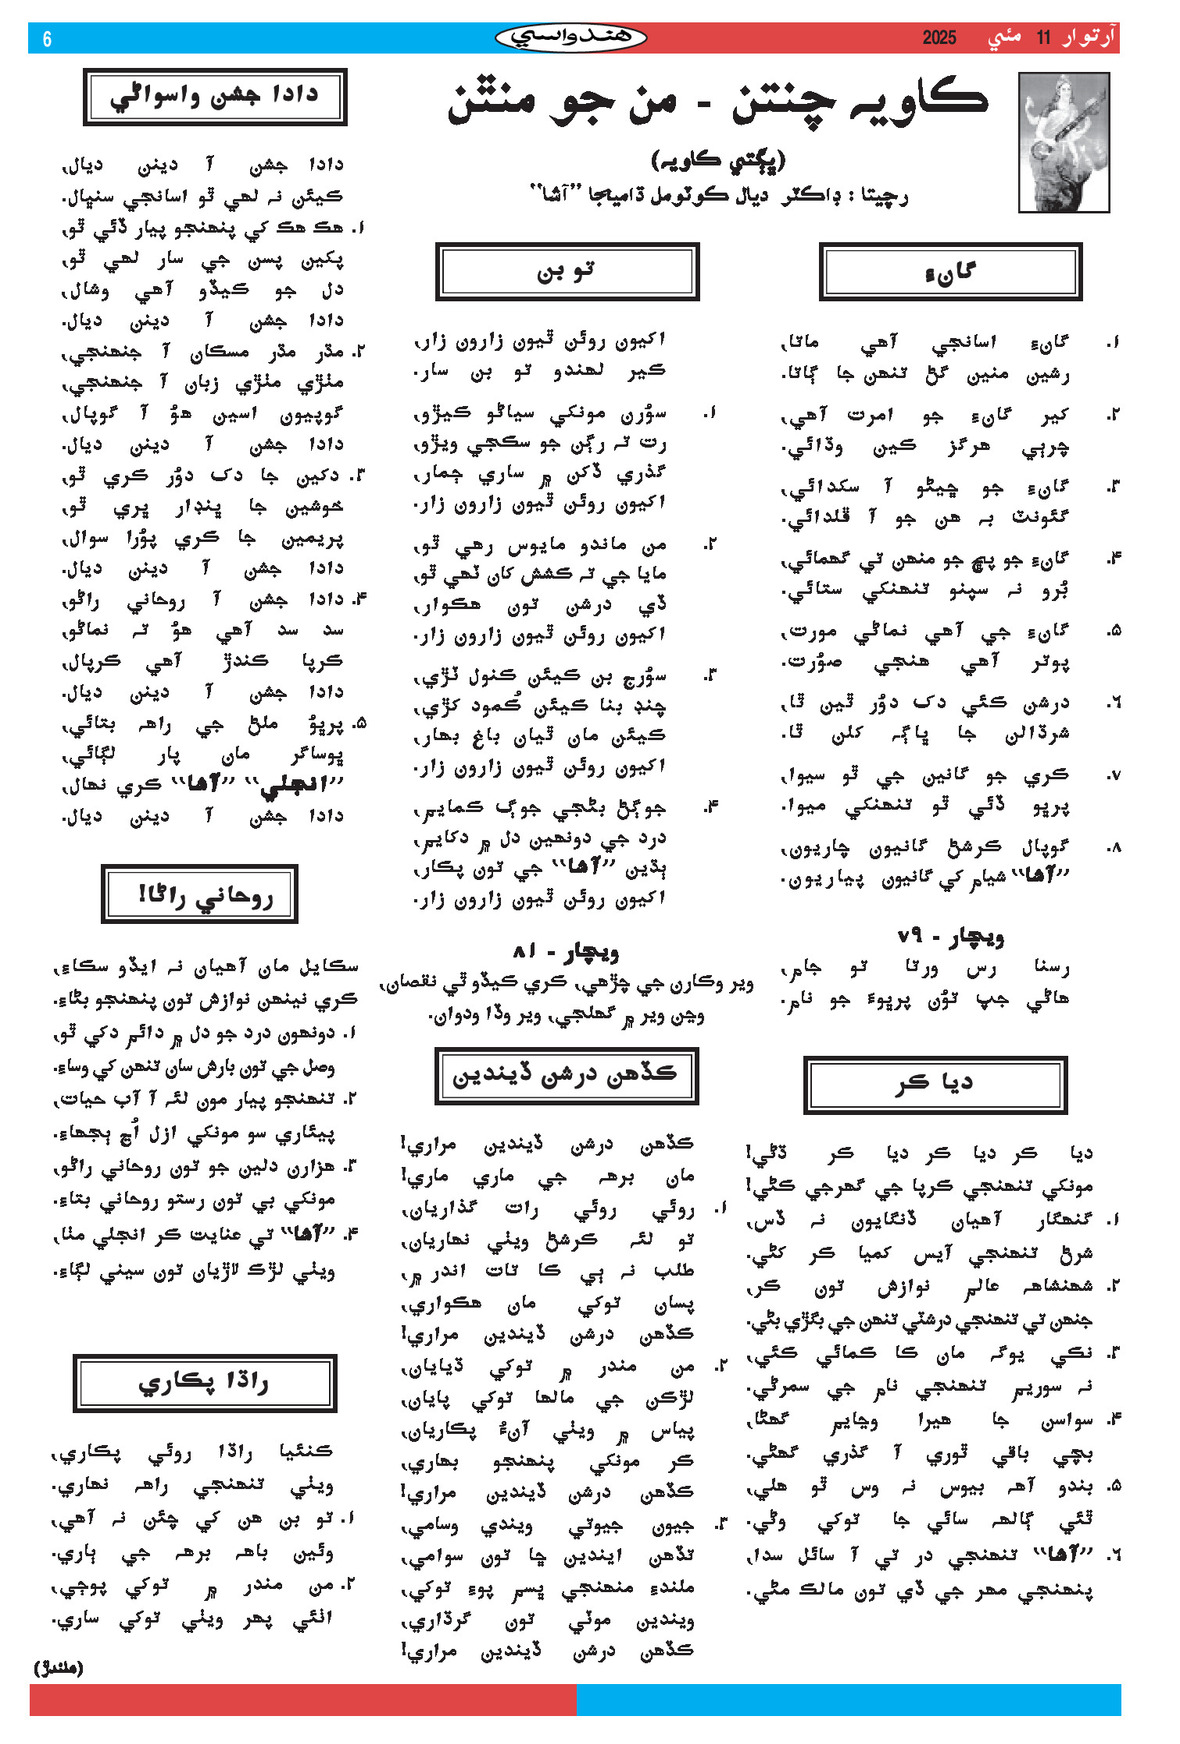 آرتوار 11 مئي 2025
هندواسي
6
ڪاويہ چنتن - من جو منٿن
(ڀڳتي ڪاويہ)
رچيتا : ڊاڪٽر ديال ڪوٽومل ڌاميڄا ”آشا“
گانءِ
۱. گانءِ اسانجي آهي ماتا،
رشين منين گڻ تنهن جا ڳاتا.
۲. کير گانءِ جو امرت آهي،
چرٻي هرگز ڪين وڌائي.
۳. گانءِ جو چيڻو آ سڪدائي،
گئونٽ بہ هن جو آ ڦلدائي.
۴. گانءِ جو پڇ جو منهن تي گهمائي،
بُرو نہ سپنو تنهنکي ستائي.
۵. گانءِ جي آهي نماڻي مورت،
پوتر آهي هنجي صوُرت.
۶. درشن ڪئي دک دوُر ٿين ٿا،
شرڌالن جا ڀاڳہ کلن ٿا.
۷. ڪري جو گانين جي ٿو سيوا،
پرڀو ڏئي ٿو تنهنکي ميوا.
۸. گوپال ڪرشڻ گانيون چاريون،
”آشا“ شيام کي گانيون پياريون.
ويچار - ۷۹
رسنا رس ورتا تو جام،
هاڻي جپ توُن پرڀوءَ جو نام.
ديا ڪر
ديا ڪر ديا ڪر ديا ڪر ڌڻي!
مونکي تنهنجي ڪرپا جي گهرجي ڪڻي!
۱. گنهگار آهيان ڏنگايون نہ ڏس،
شرڻ تنهنجي آيس کميا ڪر کڻي.
۲. شهنشاهہ عالم نوازش تون ڪر،
جنهن تي تنهنجي درشٽي تنهن جي بگڙي بڻي.
۳. نڪي يوگہ مان ڪا ڪمائي ڪئي،
نہ سوريم تنهنجي نام جي سمرڻي.
۴. سواسن جا هيرا وڃايم گهڻا،
بچي باقي ٿوري آ گذري گهڻي.
۵. بندو آهہ بيوس نہ وس ٿو هلي،
ٿئي ڳالهہ سائي جا توکي وڻي.
۶. ”آشا“ تنهنجي در تي آ سائل سدا،
پنهنجي مهر جي ڏي تون مالڪ مڻي.
تو بن
اکيون روئن ٿيون زارون زار،
ڪير لهندو تو بن سار.
۱. سوُرن مونکي سياڻو ڪيڙو،
رت تہ رڳن جو سڪجي ويڙو،
گذري ڏکن ۾ ساري ڄمار،
اکيون روئن ٿيون زارون زار.
۲. من ماندو مايوس رهي ٿو،
مايا جي تہ ڪشش کان ٽهي ٿو،
ڏي درشن تون هڪوار،
اکيون روئن ٿيون زارون زار.
۳. سوُرج بن ڪيئن ڪنول ٽڙي،
چنڊ بنا ڪيئن ڪُمود کڙي،
ڪيئن مان ٿيان باغ بهار،
اکيون روئن ٿيون زارون زار.
۴. جوڳڻ بڻجي جوڳ ڪمايم،
درد جي دونهين دل ۾ دکايم،
ٻڌين ”آشا“ جي تون پڪار،
اکيون روئن ٿيون زارون زار.
ويچار - ۸۱
وير وڪارن جي چڙهي، ڪري ڪيڏو ٿي نقصان،
وڃن وير ۾ گهلجي، وير وڏا ودوان.
ڪڏهن درشن ڏيندين
ڪڏهن درشن ڏيندين مراري!
مان برهہ جي ماري ماري!
۱. روئي روئي رات گذاريان،
تو لئہ ڪرشڻ ويٺي نهاريان،
طلب نہ ٻي ڪا تات اندر ۾،
پسان توکي مان هڪواري،
ڪڏهن درشن ڏيندين مراري!
۲. من مندر ۾ توکي ڏيايان،
لڙڪن جي مالها توکي پايان،
پياس ۾ ويٺي آنءُ پڪاريان،
ڪر مونکي پنهنجو بهاري،
ڪڏهن درشن ڏيندين مراري!
۳. جيون جيوتي ويندي وسامي،
تڏهن ايندين ڇا تون سوامي،
ملندءِ منهنجي ڀسم پوءِ توکي،
ويندين موٽي تون گرڌاري،
ڪڏهن درشن ڏيندين مراري!
دادا جشن واسواڻي
دادا جشن آ دينن ديال،
ڪيئن نہ لهي ٿو اسانجي سنڀال.
۱. هڪ هڪ کي پنهنجو پيار ڏئي ٿو،
پکين پسن جي سار لهي ٿو،
دل جو ڪيڏو آهي وشال،
دادا جشن آ دينن ديال.
۲. مڌر مڌر مسڪان آ جنهنجي،
مٺڙي مٺڙي زبان آ جنهنجي،
گوپيون اسين هوُ آ گوپال،
دادا جشن آ دينن ديال.
۳. دکين جا دک دوُر ڪري ٿو،
خوشين جا ڀنڊار ڀري ٿو،
پريمين جا ڪري پوُرا سوال،
دادا جشن آ دينن ديال.
۴. دادا جشن آ روحاني راڻو،
سد سد آهي هوُ تہ نماڻو،
ڪرپا ڪندڙ آهي ڪرپال،
دادا جشن آ دينن ديال.
۵. پرڀوُ ملڻ جي راهہ بتائي،
ڀوساگر مان پار لڳائي،
”انجلي“ ”آشا“ ڪري نهال،
دادا جشن آ دينن ديال.
روحاني راڻا!
سڪايل مان آهيان نہ ايڏو سڪاءِ،
ڪري نينهن نوازش تون پنهنجو بڻاءِ.
۱. دونهون درد جو دل ۾ دائم دکي ٿو،
وصل جي تون بارش سان تنهن کي وساءِ.
۲. تنهنجو پيار مون لئہ آ آب حيات،
پيئاري سو مونکي ازل اُڃ ٻجهاءِ.
۳. هزارن دلين جو تون روحاني راڻو،
مونکي بي تون رستو روحاني بتاءِ.
۴. ”آشا“ تي عنايت ڪر انجلي مٺا،
ويٺي لڙڪ لاڙيان تون سيني لڳاءِ.
راڌا پڪاري
ڪنئيا راڌا روئي پڪاري،
ويٺي تنهنجي راهہ نهاري.
۱. تو بن هن کي چئن نہ آهي،
وئين باهہ برهہ جي ٻاري.
۲. من مندر ۾ توکي پوڄي،
اٺئي پهر ويٺي توکي ساري.
(هلندڙ)